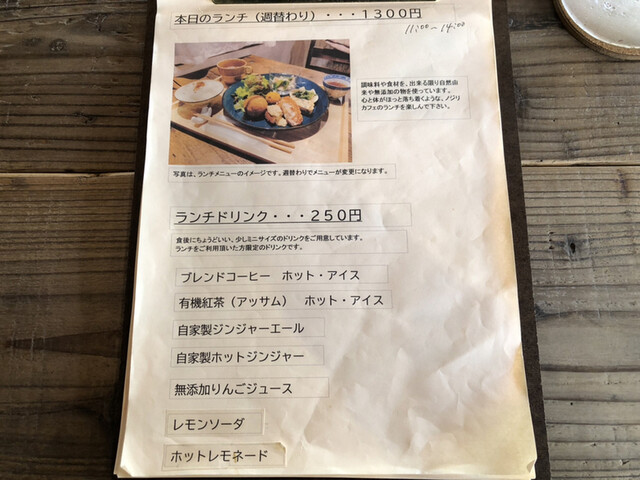 本日のランチ（週替わり）・・・１３００円
11:00～14:00
調味料や食材を、出来る限り自然由
来や無添加の物を使っています。
心と体がほっと落ち着くような、ノジリ
カフェのランチを楽しんで下さい。
写真は、ランチメニューのイメージです。週替わりでメニューが変更になります。
ランチドリンク・・・２５０円
食後にちょうどいい、少しミニサイズのドリンクをご用意しています。
ランチをご利用頂いた方限定のドリンクです。
ブレンドコーヒー　ホット・アイス
有機紅茶（アッサム）　ホット・アイス
自家製ジンジャーエール
自家製ホットジンジャー
無添加りんごジュース
レモンソーダ
ホットレモネード